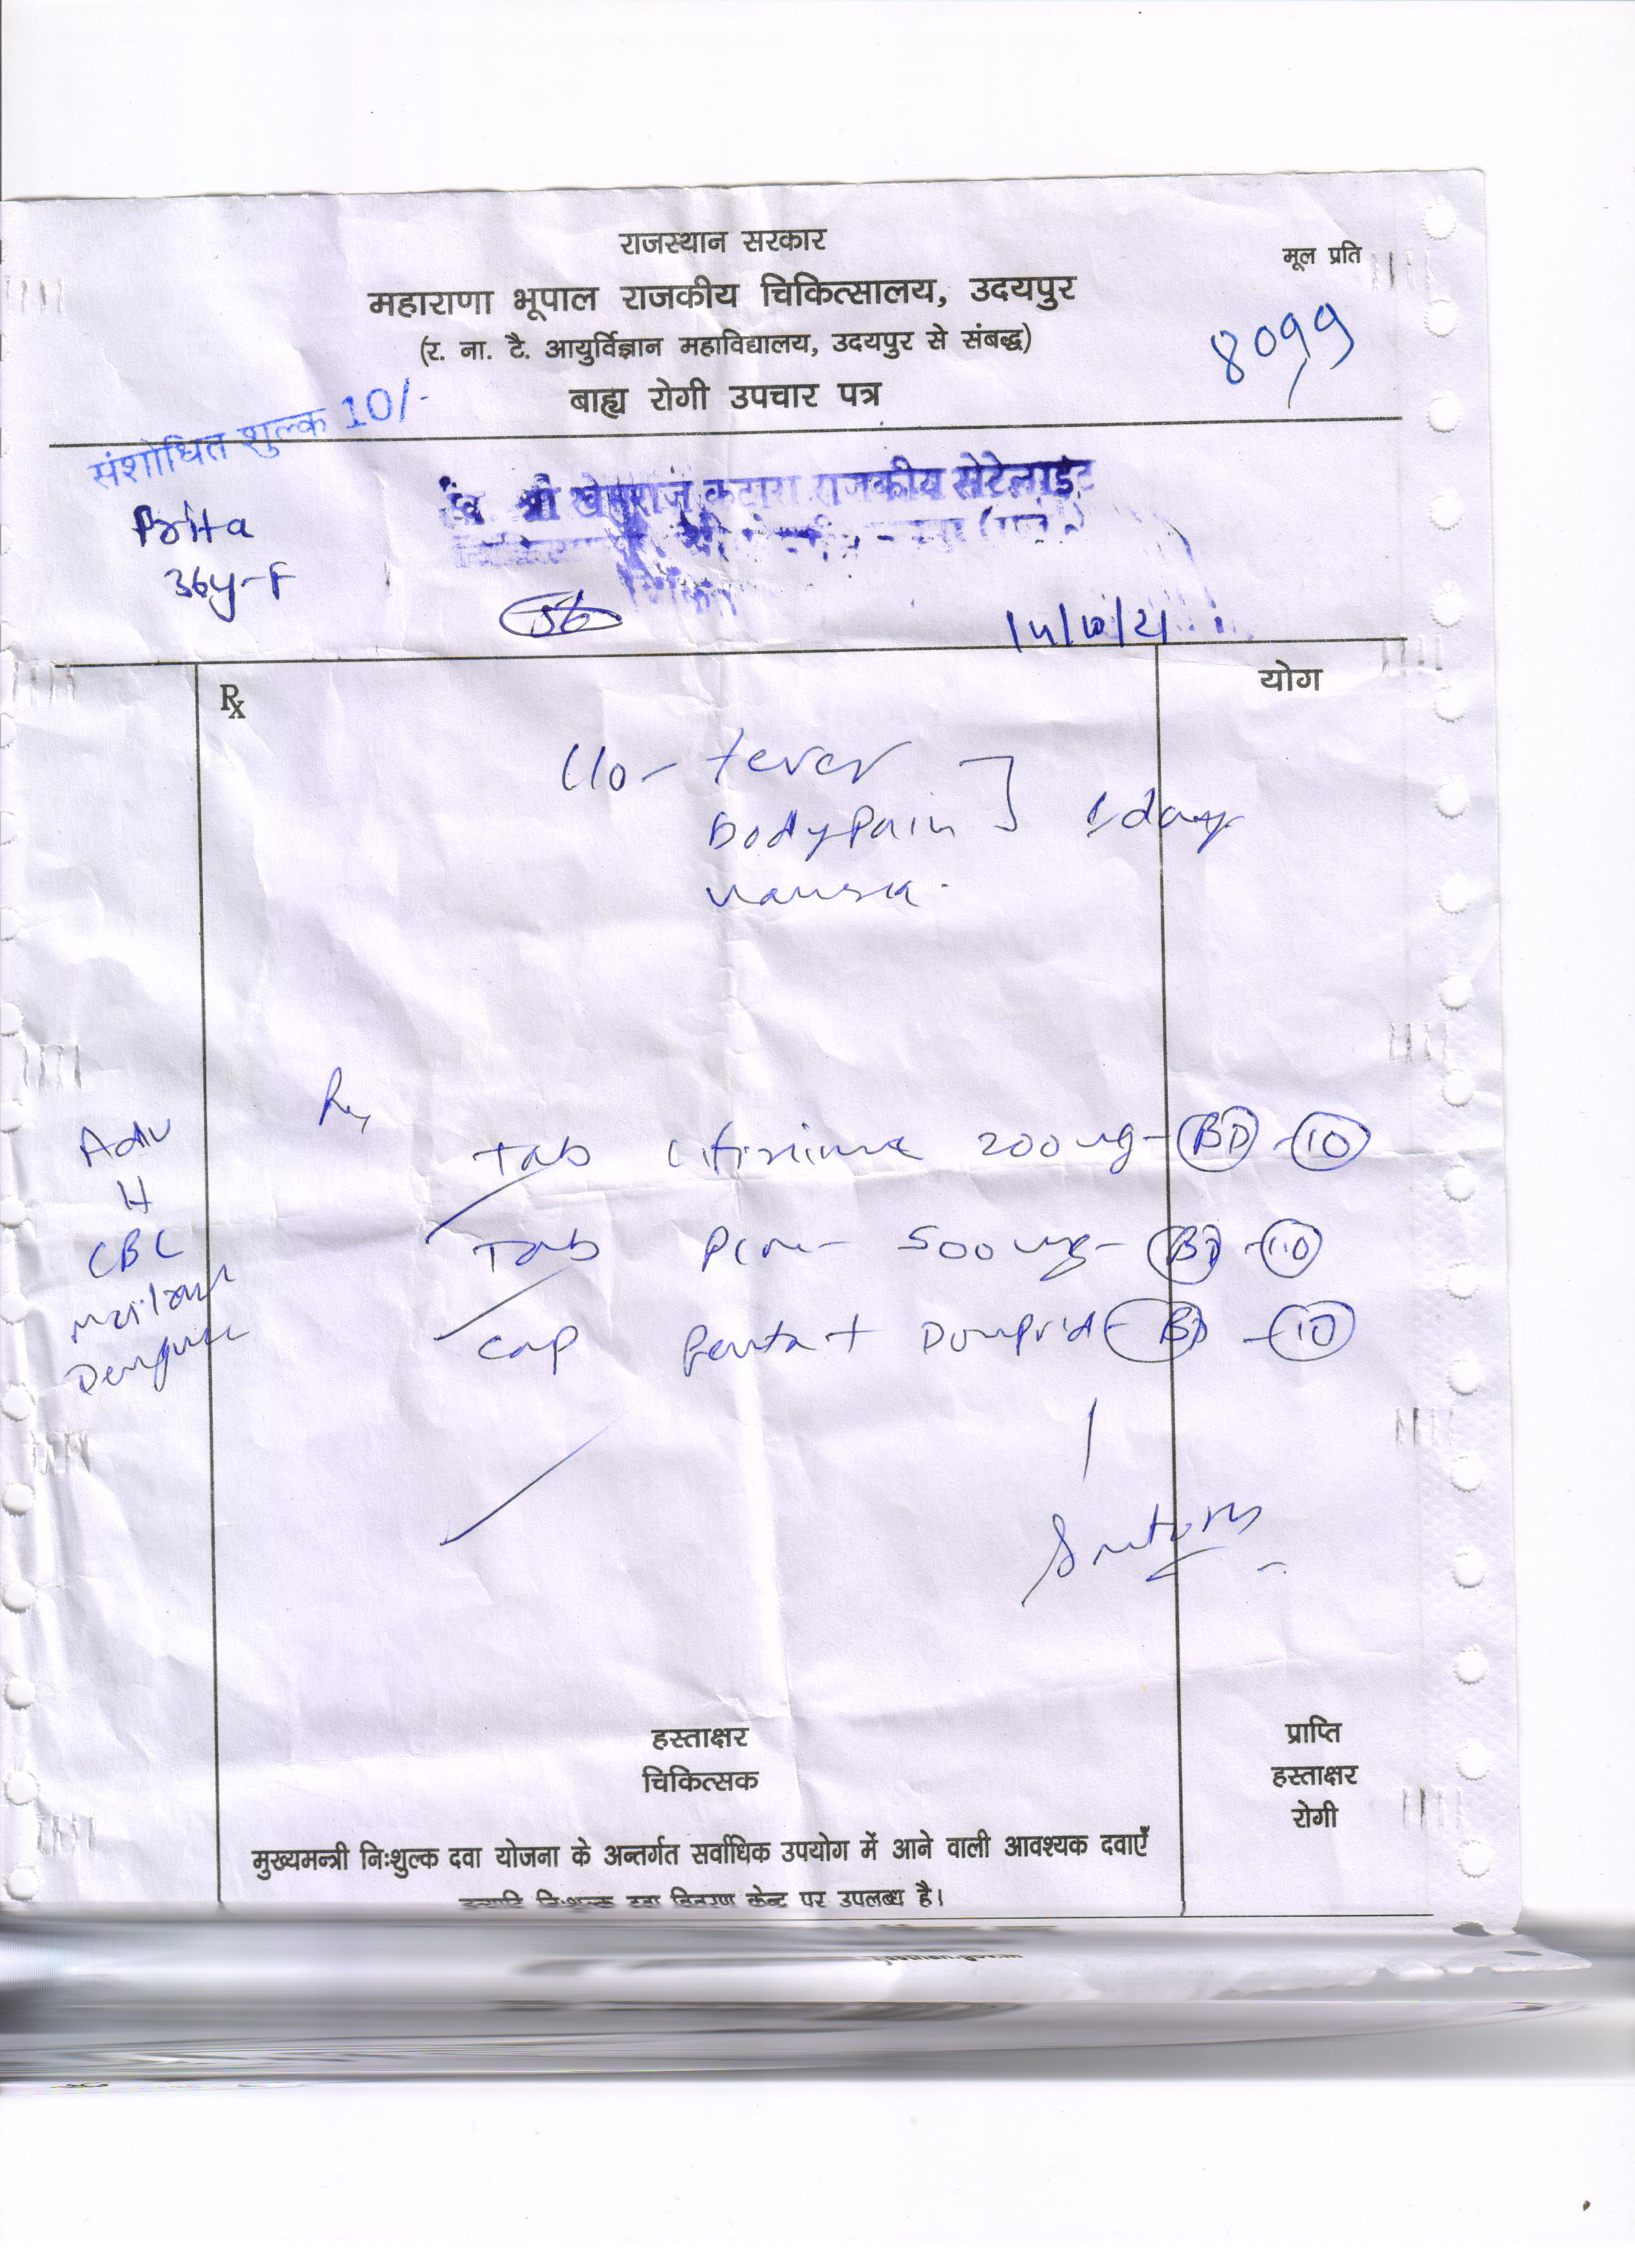 राजस्थान सरकार
मूल प्रति
महाराणा भूपाल राजकीय चिकित्सालय, उदयपुर
(र. ना. टै. आयुर्विज्ञान महाविद्यालय, उदयपुर से संबद्ध)
8099
बाह्य रोगी उपचार पत्र
संशोधित शुल्क 10/-
श्री खेमराज कटारा राजकीय सेटेलाईट
36y-F
56
योग
Rx
C/o- fever
bodypain
1 day
nausea.
Rx
Adv
Tab Cifixime 200mg- BD -10
CBC
Tab PCM- 500mg- BD -10
Dengue
Cap Penta + Domprid- BD -10
हस्ताक्षर
चिकित्सक
प्राप्ति
हस्ताक्षर
रोगी
मुख्यमन्त्री निःशुल्क दवा योजना के अन्तर्गत सर्वाधिक उपयोग में आने वाली आवश्यक दवाएँ
निःशुल्क दवा वितरण केन्द्र पर उपलब्ध है।